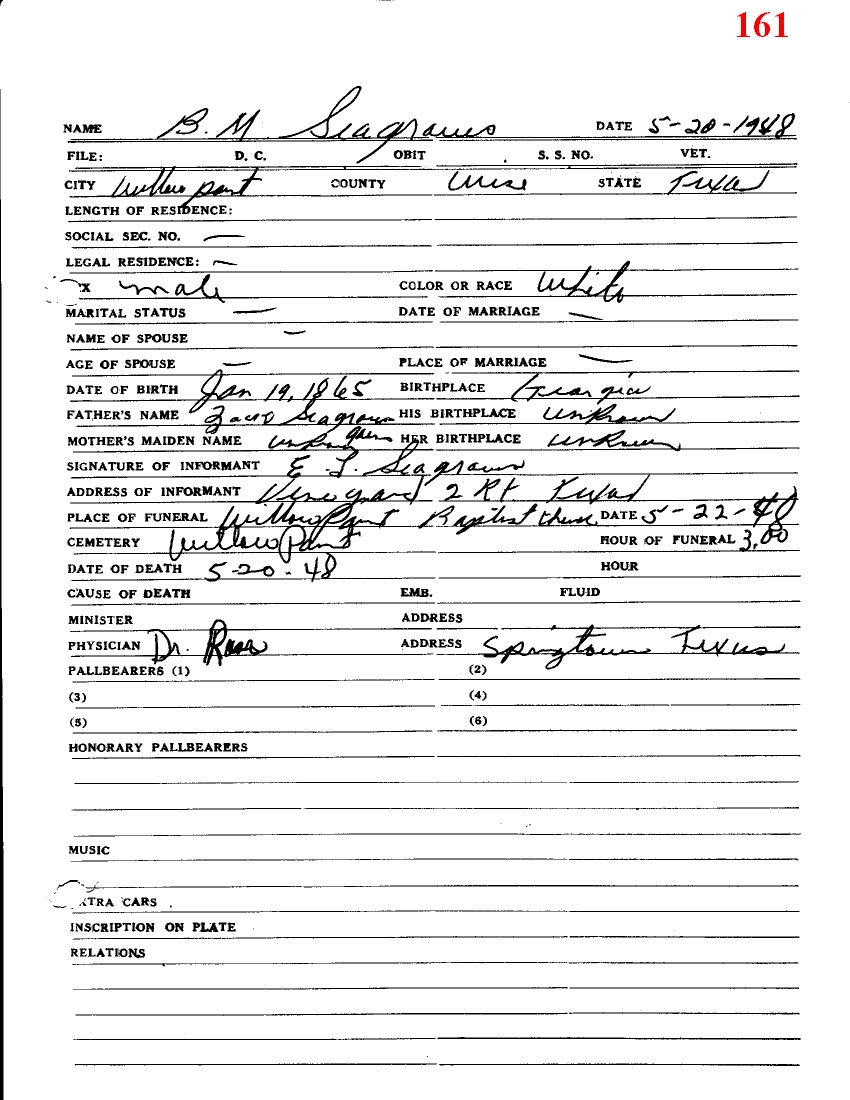 161
NAME B. M Seagraves DATE 5-20-1948
FILE: D. C. OBIT S. S. NO. VET.
CITY Willow point COUNTY Wise STATE Texas
LENGTH OF RESIDENCE:
SOCIAL SEC. NO. —
LEGAL RESIDENCE: —
X male COLOR OR RACE White
MARITAL STATUS — DATE OF MARRIAGE —
NAME OF SPOUSE —
AGE OF SPOUSE — PLACE OF MARRIAGE —
DATE OF BIRTH Jan 19, 1865 BIRTHPLACE Georgia
FATHER'S NAME Seagraves HIS BIRTHPLACE unknown
MOTHER'S MAIDEN NAME HER BIRTHPLACE unknown
SIGNATURE OF INFORMANT E. L. Seagraves
ADDRESS OF INFORMANT Vineyard 2 Rt Texas
PLACE OF FUNERAL Willow Point Baptist church DATE 5-22-48
CEMETERY Willow Point HOUR OF FUNERAL 3,00
DATE OF DEATH 5-20-48 HOUR
CAUSE OF DEATH EMB. FLUID
MINISTER ADDRESS
PHYSICIAN Dr. ADDRESS Springtown Texas
PALLBEARERS (1) (2)
(3) (4)
(5) (6)
HONORARY PALLBEARERS
MUSIC
XTRA CARS
INSCRIPTION ON PLATE
RELATIONS